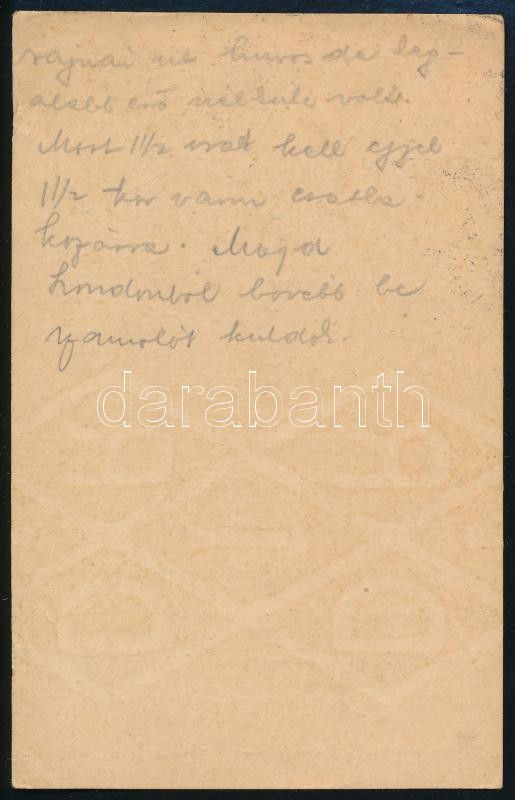 rajnai ut huvos de leg-
alább eső nélkuli volt.
Most 1 1/2 orat kell ejjel
1 1/2 kor varni csatla
kozásra. Majd
Londonból bovebb be
szamolót kuldok.
darabanth